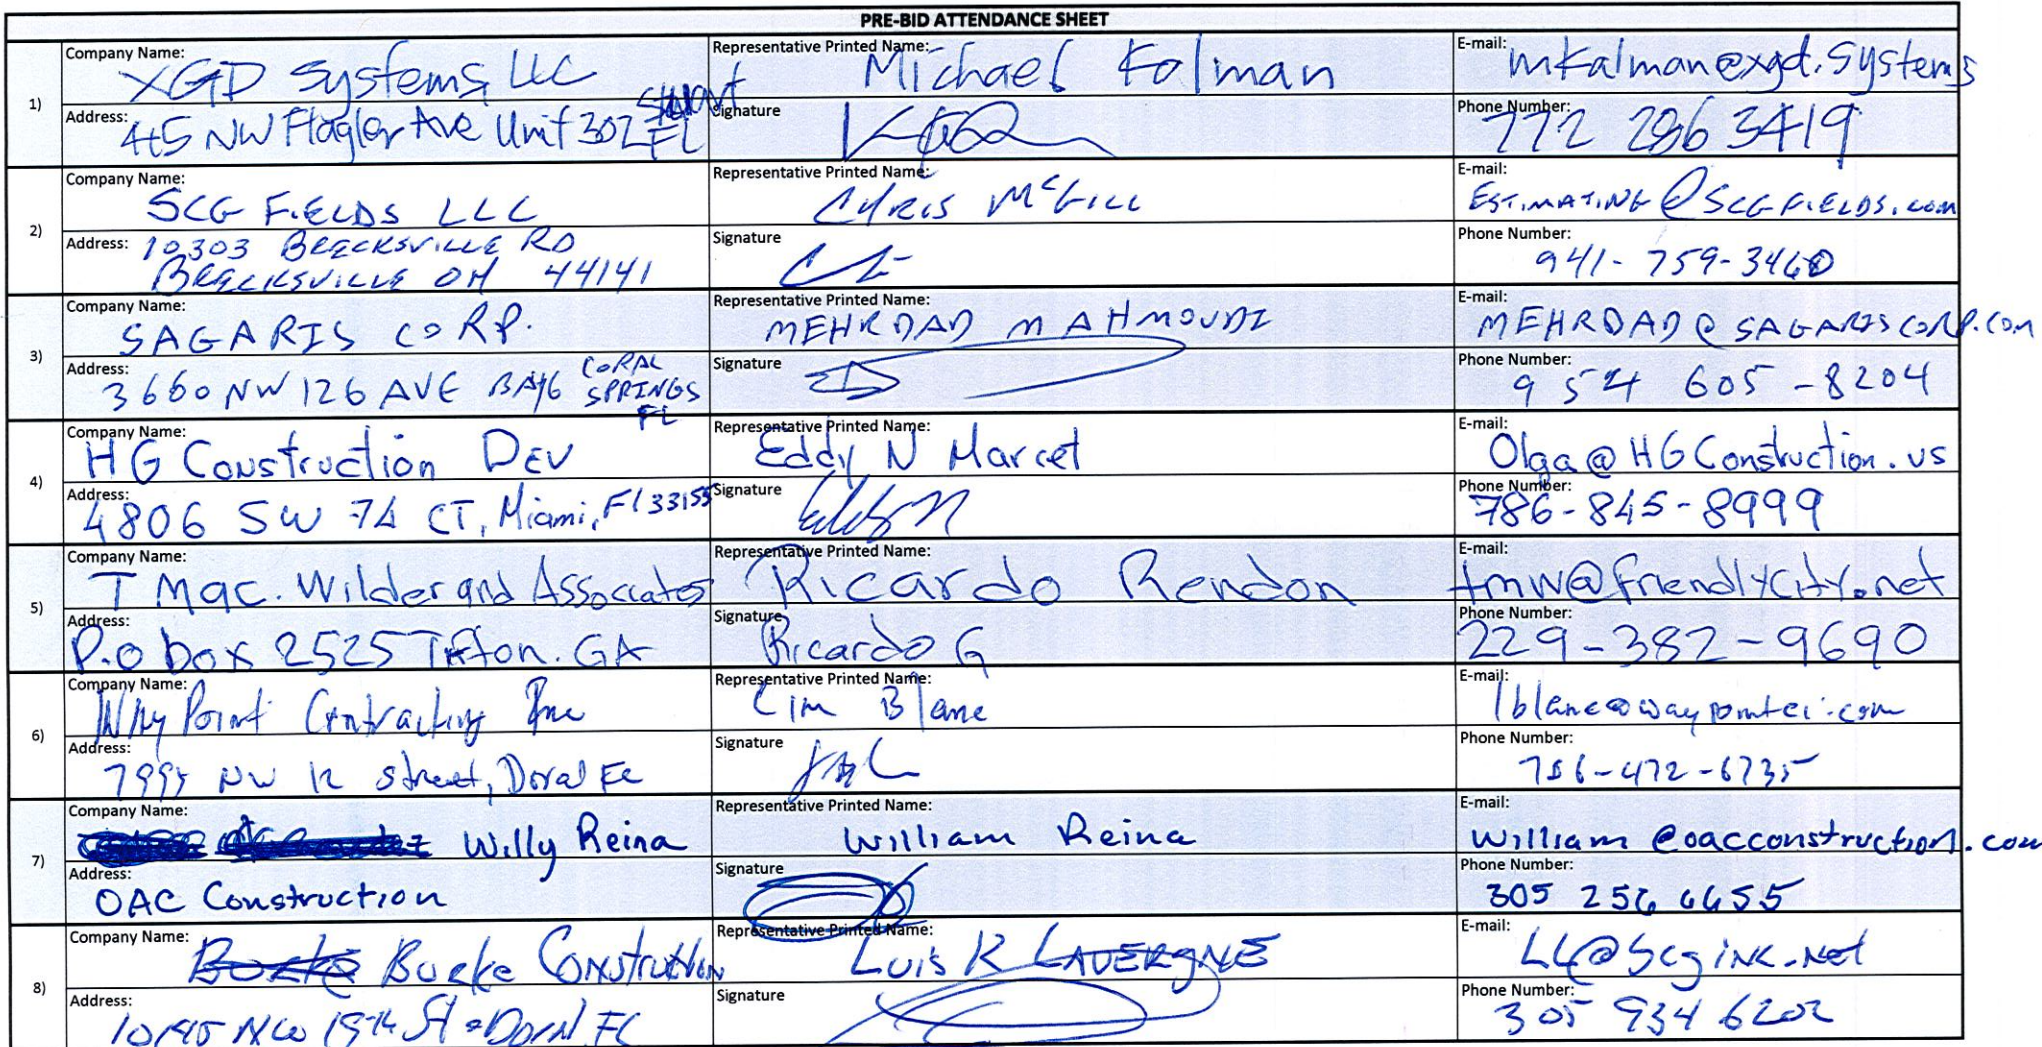 PRE-BID ATTENDANCE SHEET
1)
Company Name: XGD Systems, LLC
Representative Printed Name: Michael Kalman
E-mail: mkalman@xgd.systems
Address: 445 NW Flagler Ave Unit 302 STUART FL
Signature
Phone Number: 772 286 3419
2)
Company Name: SCG FIELDS LLC
Representative Printed Name: CHRIS McGILL
E-mail: ESTIMATING@SCGFIELDS.COM
Address: 10303 BRECKSVILLE RD
BRECKSVILLE OH 44141
Signature
Phone Number: 941-759-3460
3)
Company Name: SAGARIS CORP.
Representative Printed Name: MEHRDAD MAHMOUDI
E-mail: MEHRDAD@SAGARISCORP.COM
Address: 3660 NW 126 AVE BAY6 CORAL SPRINGS FL
Signature
Phone Number: 954 605-8204
4)
Company Name: HG Construction DEV
Representative Printed Name: Eddy N Marcet
E-mail: Olga@HGConstruction.us
Address: 4806 SW 74 CT, Miami, Fl 33155
Signature
Phone Number: 786-845-8999
5)
Company Name: T Mac. Wilder and Assocates
Representative Printed Name: Ricardo Rendon
E-mail: tmw@friendlycity.net
Address: P.O box 2525 Tifton. GA
Signature Ricardo G
Phone Number: 229-382-9690
6)
Company Name: Way Point Contracting Inc
Representative Printed Name: Lim Blanc
E-mail: lblanc@waypointci.com
Address: 7995 NW 12 street, Doral FL
Signature
Phone Number: 786-472-6735
7)
Company Name: Willy Reina
Representative Printed Name: William Reina
E-mail: william@oacconstruction.com
Address: OAC Construction
Signature
Phone Number: 305 256 6655
8)
Company Name: Burke Construction
Representative Printed Name: LUIS R LAVERGNE
E-mail: LL@scginc.net
Address: NW 19th St Doral FL
Signature
Phone Number: 305 934 6202